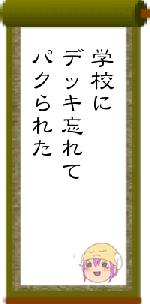 学校に
デッキ忘れて
パクられた